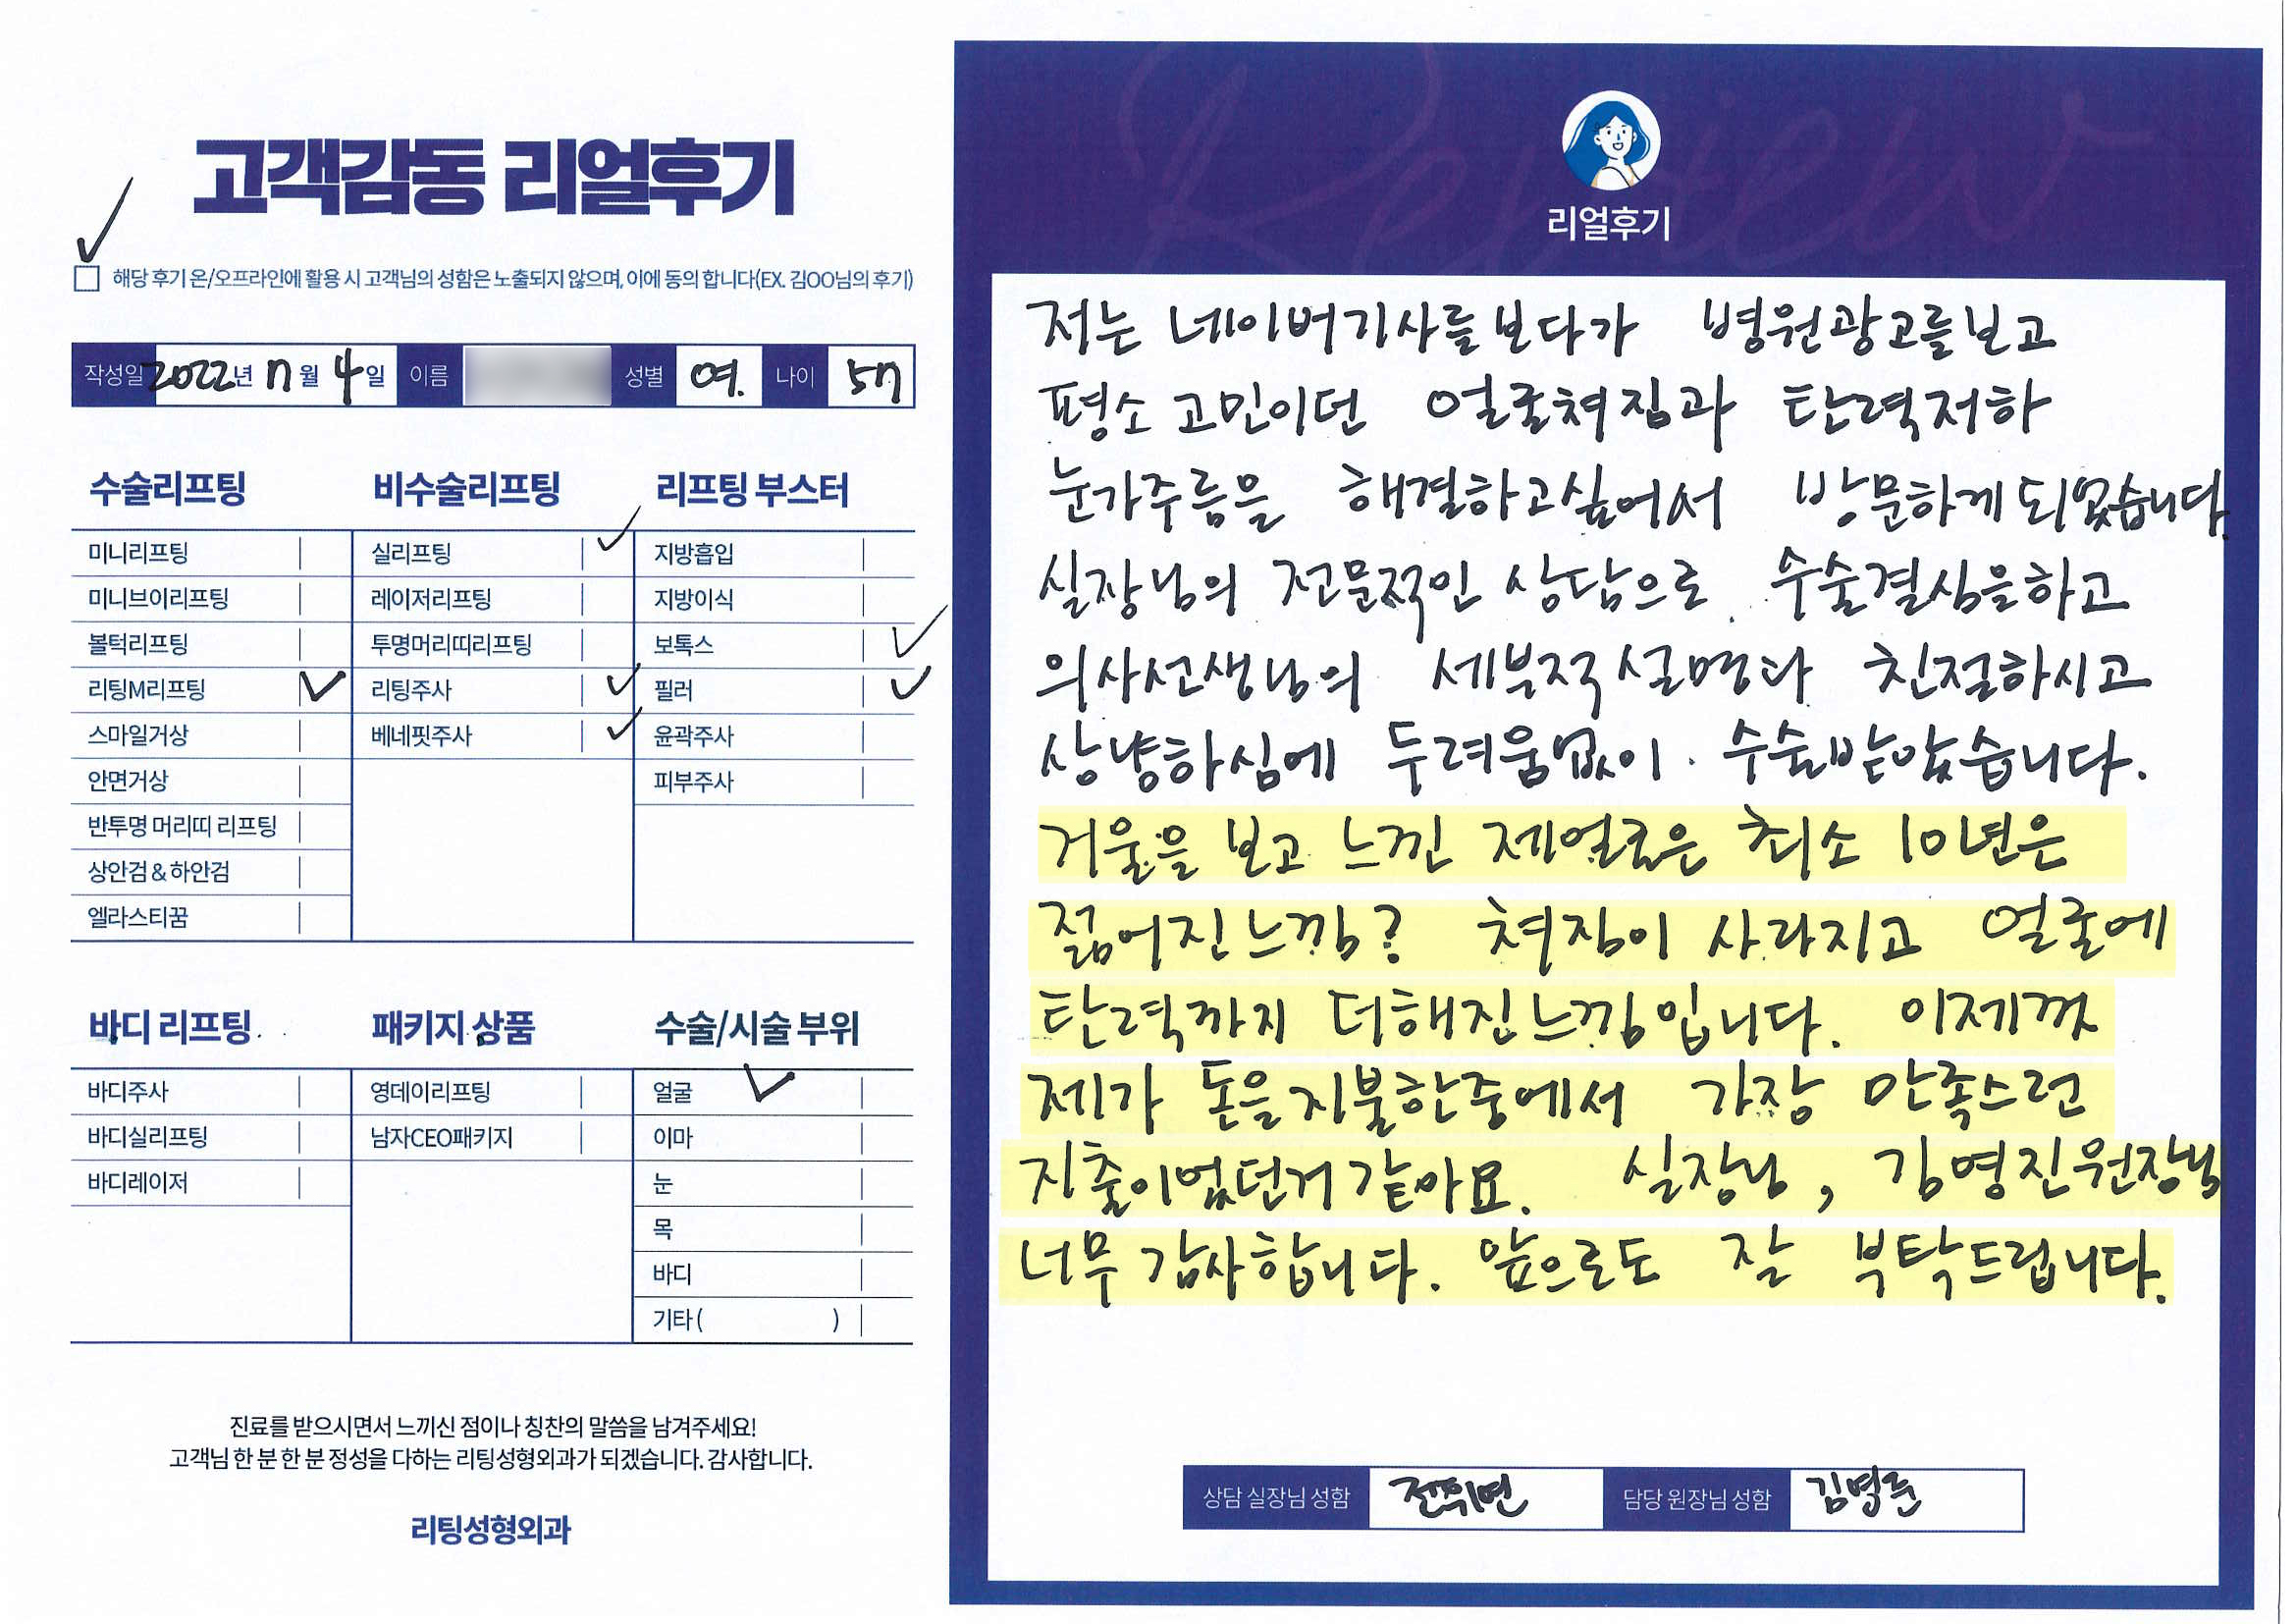 고객감동 리얼후기
해당 후기 온/오프라인에 활용 시 고객님의 성함은 노출되지 않으며, 이에 동의 합니다(EX. 김OO님의 후기)
작성일 2022년 7월 4일 이름 성별 여. 나이 57
수술리프팅 비수술리프팅 리프팅 부스터
미니리프팅 실리프팅 지방흡입
미니브이리프팅 레이저리프팅 지방이식
볼턱리프팅 투명머리띠리프팅 보톡스
리팅M리프팅 리팅주사 필러
스마일거상 베네핏주사 윤곽주사
안면거상 피부주사
반투명 머리띠 리프팅
상안검 & 하안검
엘라스티꿈
바디 리프팅 패키지 상품 수술/시술 부위
바디주사 영데이리프팅 얼굴
바디실리프팅 남자CEO패키지 이마
바디레이저 눈
목
바디
기타 ( )
진료를 받으시면서 느끼신 점이나 칭찬의 말씀을 남겨주세요!
고객님 한 분 한 분 정성을 다하는 리팅성형외과가 되겠습니다. 감사합니다.
리팅성형외과
Review
리얼후기
저는 네이버기사를 보다가 병원광고를보고
평소 고민이던 얼굴쳐짐과 탄력저하
눈가주름을 해결하고싶어서 방문하게되었습니다.
실장님의 전문적인 상담으로 수술결심을하고
의사선생님의 세부적설명과 친절하시고
상냥하심에 두려움없이. 수술받았습니다.
거울을 보고 느낀 제얼굴은 최소 10년은
젊어진느낌? 쳐짐이 사라지고 얼굴에
탄력까지 더해진느낌입니다. 이제껏
제가 돈을지불한중에서 가장 만족스런
지출이었던거같아요. 실장님, 김영진원장님
너무 감사합니다. 앞으로도 잘 부탁드립니다.
상담 실장님 성함 담당 원장님 성함